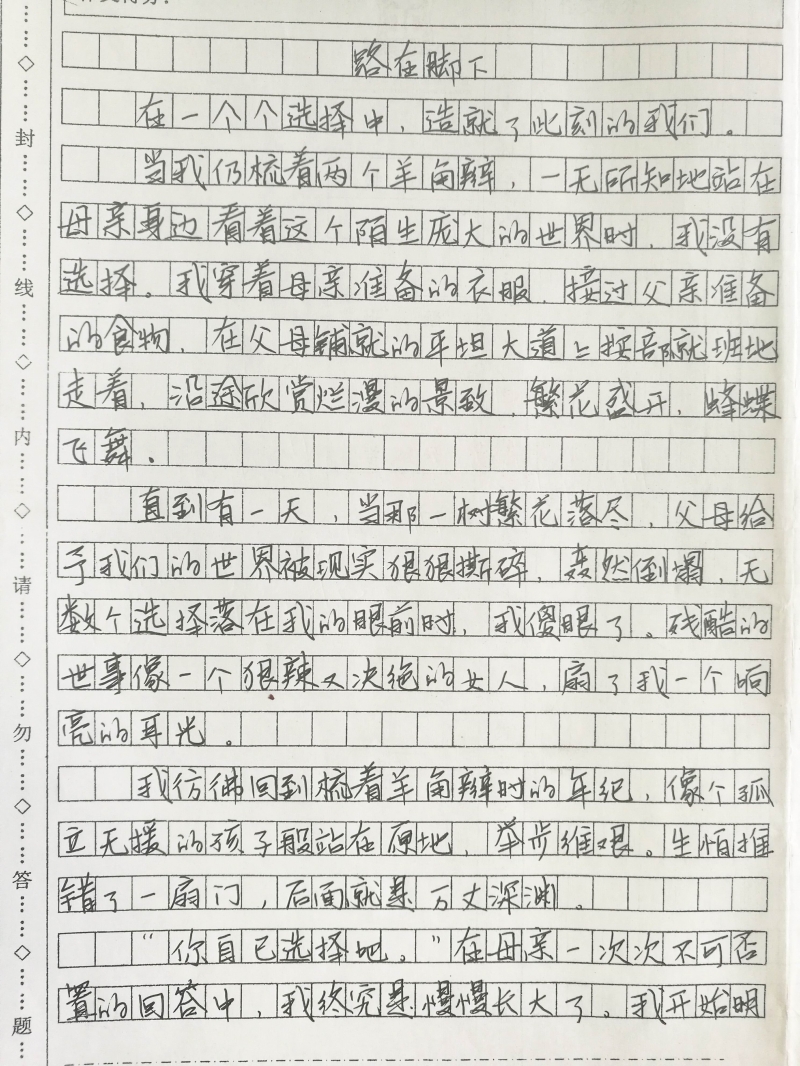 路在脚下
在一个个选择中，造就了此刻的我们。
当我仍梳着两个羊角辫，一无所知地站在
母亲身边看着这个陌生庞大的世界时，我没有
选择。我穿着母亲准备的衣服，接过父亲准备
的食物，在父母铺就的平坦大道上按部就班地
走着，沿途欣赏烂漫的景致，繁花盛开，蜂蝶
飞舞。
直到有一天，当那一树繁花落尽，父母给
予我们的世界被现实狠狠撕碎，轰然倒塌，无
数个选择落在我的眼前时，我傻眼了。残酷的
世事像一个狠辣又决绝的女人，扇了我一个响
亮的耳光。
我仿彿回到梳着羊角辫时的年纪，像个孤
立无援的孩子般站在原地，举步维艰。生怕推
错了一扇门，后面就是万丈深渊。
“你自己选择吧。”在母亲一次次不可否
置的回答中，我终究是慢慢长大了。我开始明
封
线
内
请
勿
答
题